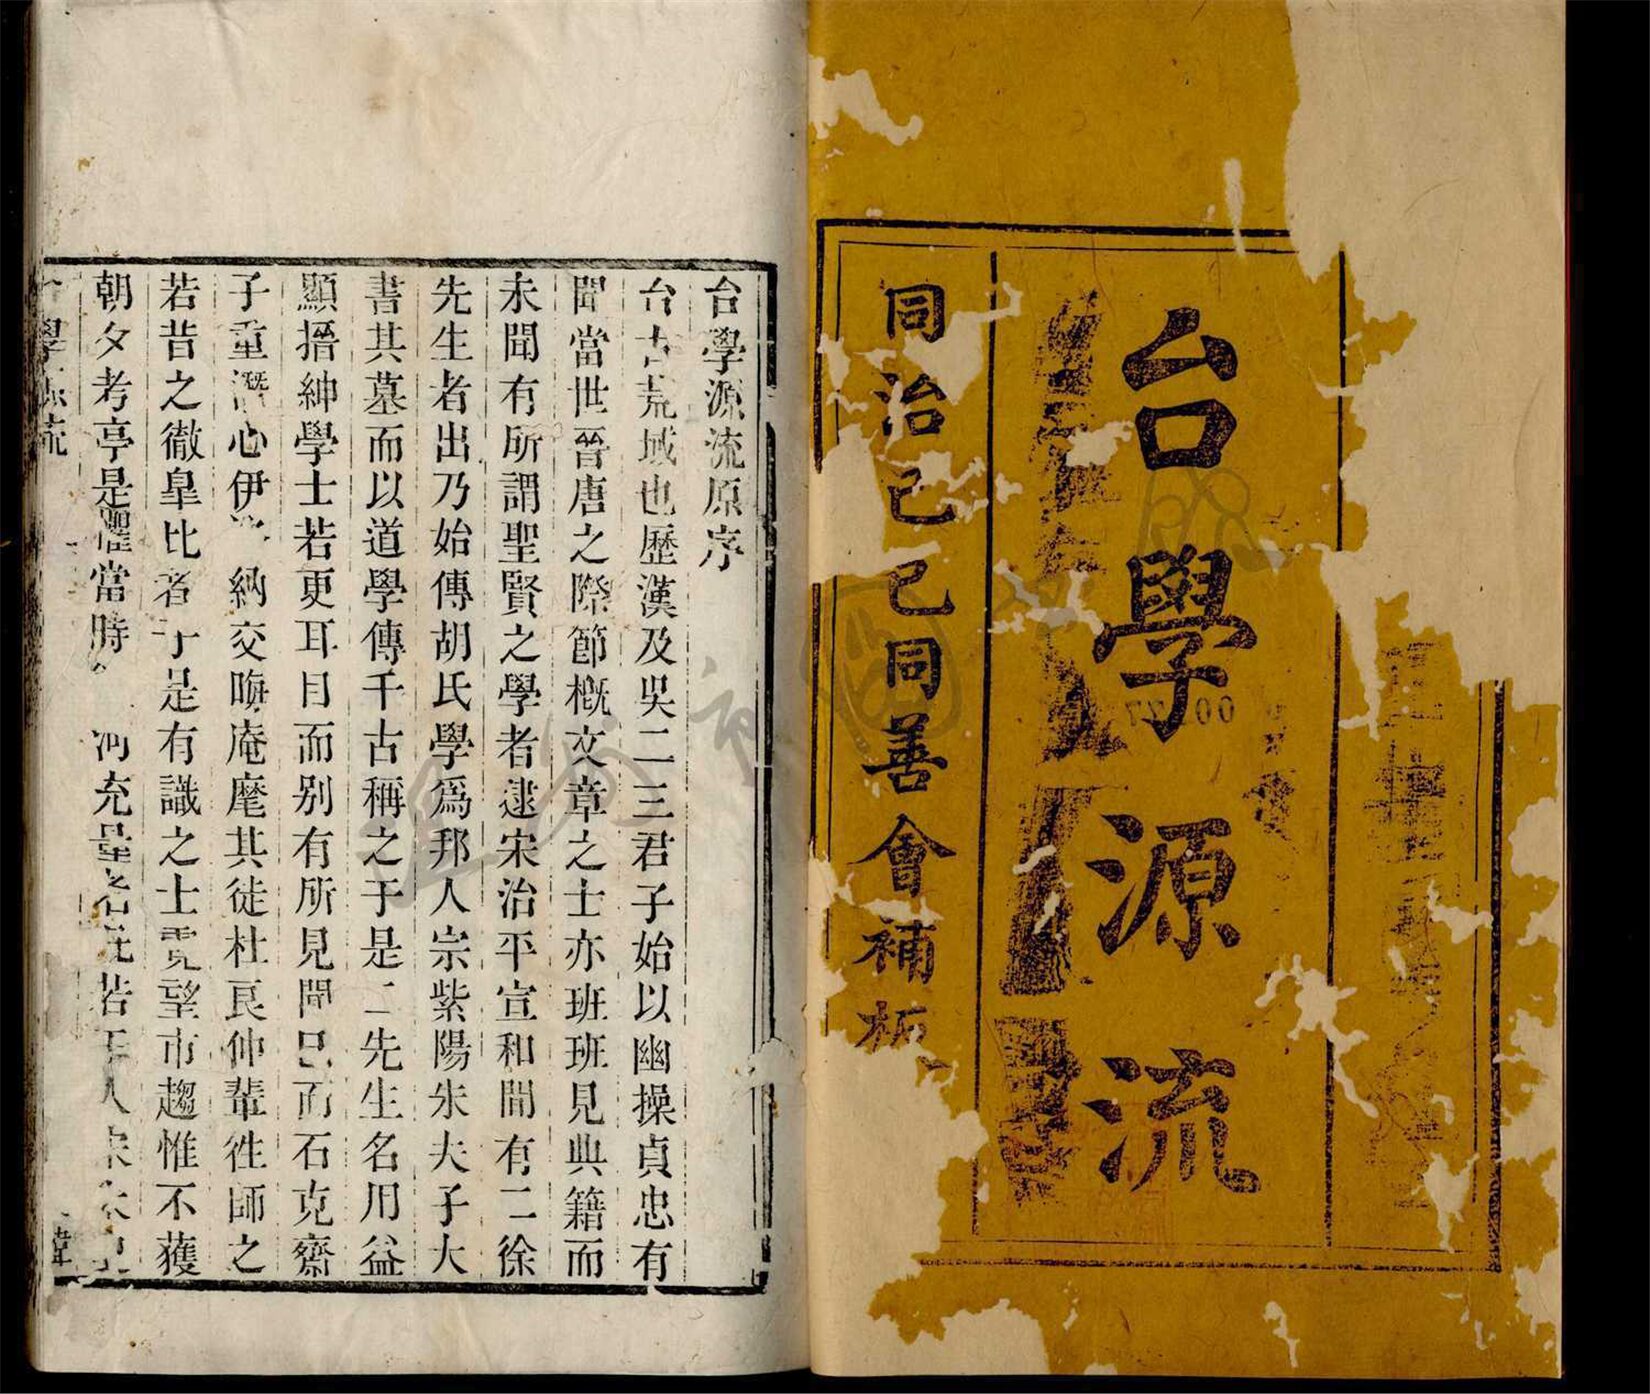 台學源流
同治己巳同善會補板
台學源流原序
台古荒域也歷漢及吳二三君子始以幽操貞忠有
聞當世晉唐之際節槪文章之士亦班班見典籍而
未聞有所謂聖賢之學者逮宋治平宣和間有二徐
先生者出乃始傳胡氏學爲邦人宗紫陽朱夫子大
書其墓而以道學傳千古稱之于是二先生名用益
顯搢紳學士若更耳目而别有所見聞已而石克齋
子重潛心伊納交晦庵麾其徒杜良仲輩徃師之
若昔之徹臯比者于是有識之士雲望市趨惟不獲
朝夕考亭是懼當時河充量者
台學源流